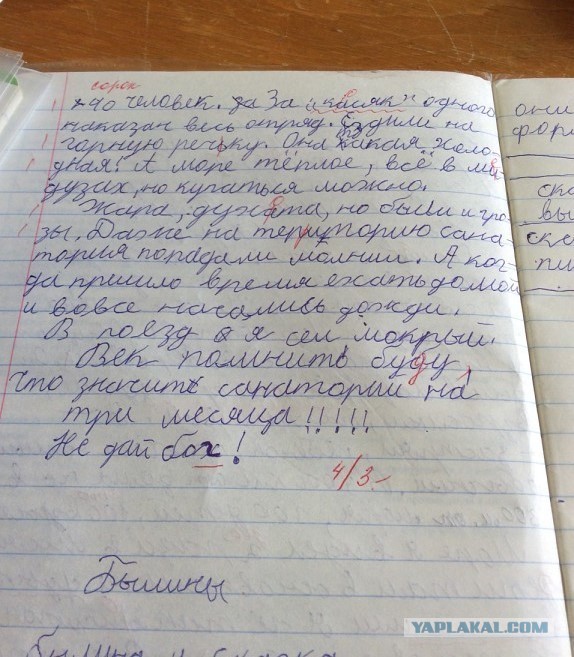 сорок
40 человек. За За "касяк" одного
наказан весь отряд. Ходили на
горную речьку. Она какая холо-
дная! А море тёплое, всё в ме
дузах, но купаться можно.
Жара, духата, но были и гро-
зы. Даже на територию сана-
тория попадали молнии. А ког-
да пришло время ехать домой
и вовсе начались дожди.
В поезд я сел мокрый.
Век помнить буду,
что значить санаторий на
три месяца!!!!!
Не дай бох!
4/3-
Былины
былина и сказка
они
фор
ска
вы
ске
пи
YAPLAKAL.COM